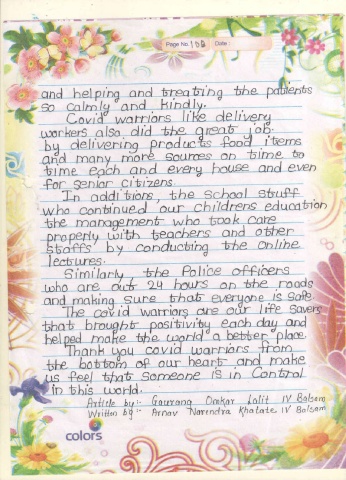 Page No. 102 Date:
and helping and treating the patients
so calmly and kindly.
Covid warriors like delivery
workers also did the great job.
by delivering products food items
and many more sources on time to
time each and every house and even
for senior citizens.
In additions, the School Stuff
who continued our childrens education
the management who took care
properly with teachers and other
staffs by conducting the Online
lectures.
Similarly, the Police officers
who are out 24 hours on the roads
and making sure that everyone is safe
The covid warriors are our life savers
that brought positivity each day and
helped make the world a better place.
Thank you covid warriors from
the bottom of our heart and make
us feel that someone is in Control
in this world.
Article by:- Gaurang Omkar Lalit IV Balsam
Written by:- Arnav Narendra Khatate IV Balsam
colors